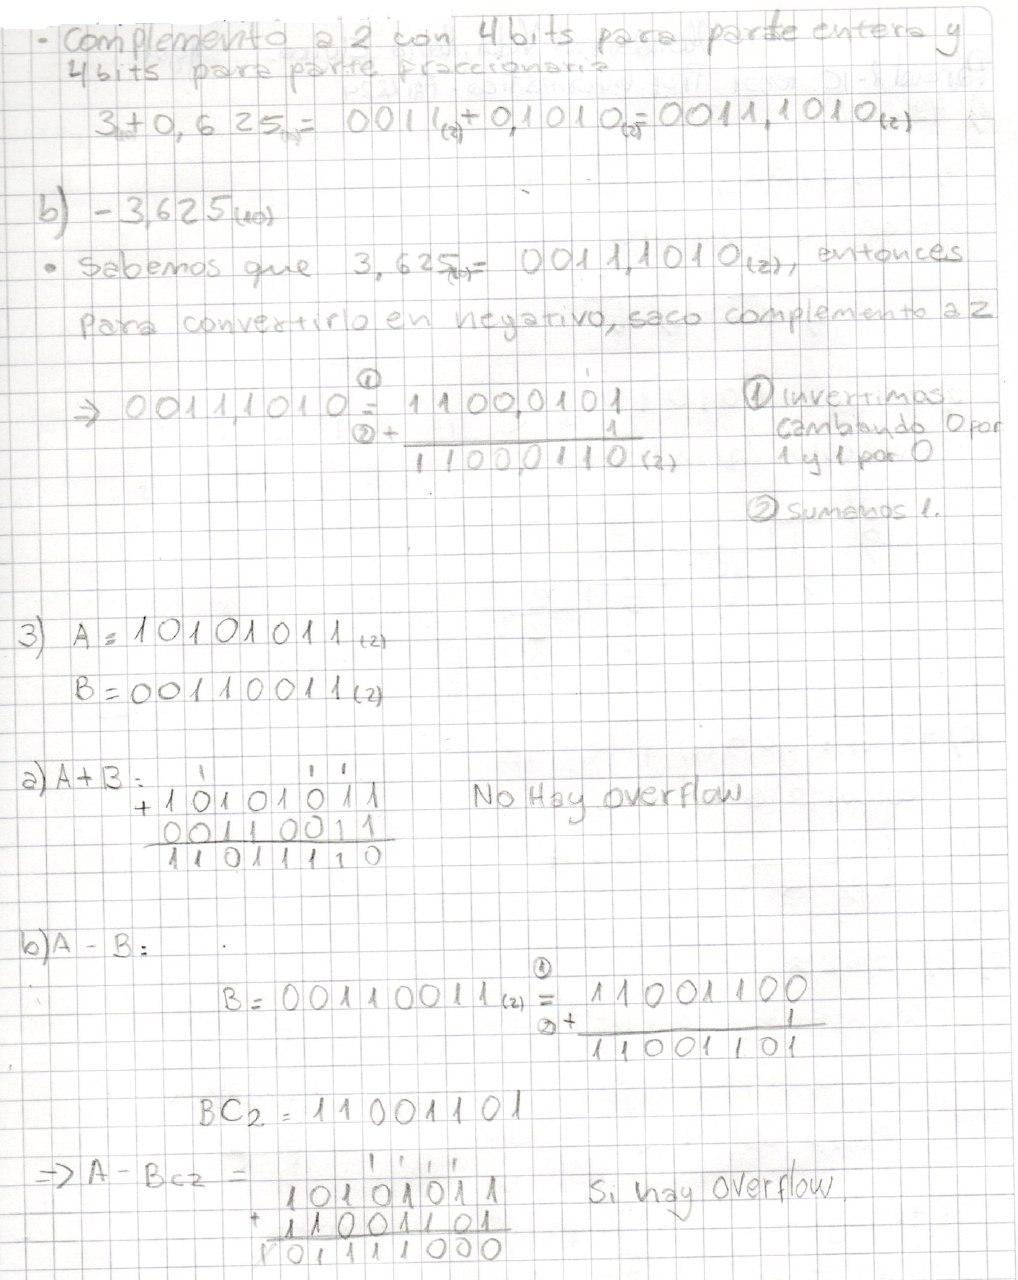 - Complemento a 2 con 4 bits para parte entera y
4 bits para parte fraccionaria
3 + 0,625(10) = 0011(2) + 0,1010(2) = 0011,1010(2)
b) - 3,625(10)
• Sabemos que 3,625(10) = 0011,1010(2), entonces
para convertirlo en negativo, saco complemento a 2
⇒ 0011,1010 = ① 1100,0101
② + 1
1100,0110 (2)
① Invertimos
cambiando 0 por
1 y 1 por 0
② Sumamos 1.
3) A = 10101011 (2)
B = 00110011 (2)
a) A + B :
1 1 1
+ 10101011
00110011
11011110
No Hay overflow
b) A - B :
B = 00110011 (2) = ① 11001100
② + 1
11001101
BC2 = 11001101
=> A - BC2 =
1 1 1 1
10101011
+ 11001101
101111000
Si hay overflow